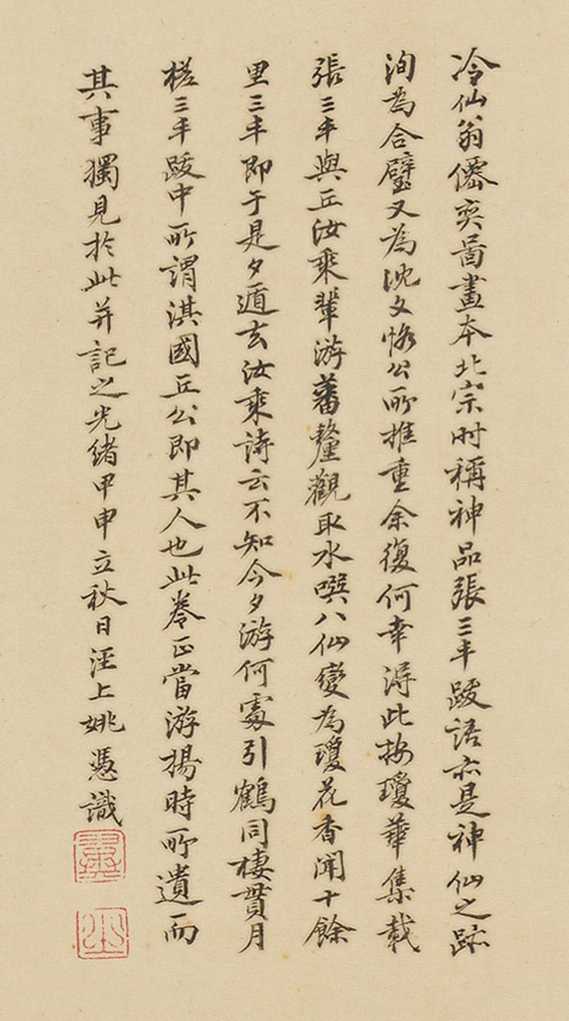 冷仙翁僊奕啚畫本北宗时稱神品張三丰跋语亦是神仙之跡
洵為合璧又為沈文恪公所推重余復何幸得此按瓊華集載
張三丰與丘汝乘輩游蕃釐觀取水噀八仙變為瓊花香聞十餘
里三丰即于是夕遁去汝乘诗云不知今夕游何處引鶴同棲貫月
槎三丰跋中所謂淇國丘公即其人也此卷正當游揚時所遺而
其事獨見於此并記之光緒甲申立秋日汪上姚憑識